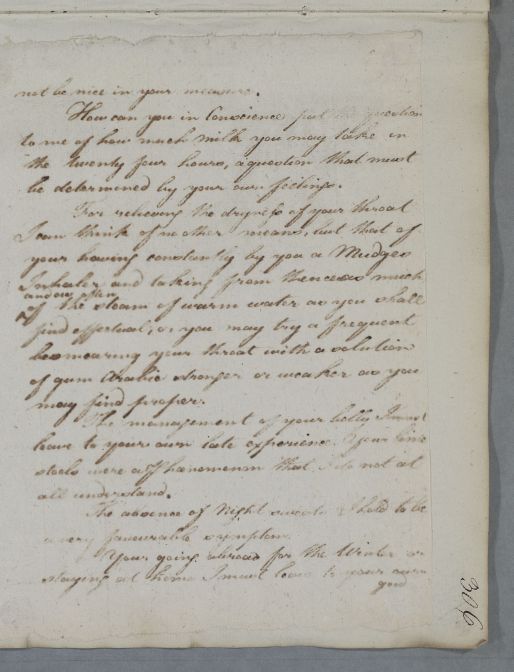 not be nice in your measure.
How can you in Conscience put the question
to me of how much milk you may take in
the twenty four hours, a question that must
be determined by your own feelings.
For relieving the dryness of your throat
I can think of no other means, but that of
your having constantly by you a Mudges
Inhaler and taking from thence as much
and as often
of the steam of warm water as you shall
find effectual, or you may try a frequent
besmearing your throat with a solution
of gum Arabic stronger or weaker as you
may find proper.
The management of your belly I must
leave to your own late experience. Your
stools were a Phanemenm that I do not at
all understand.
The absence of Night sweats I hold to be
a very favourable symptom.
Your going abroad for the Winter or
staying at home I must leave to your own
good
306